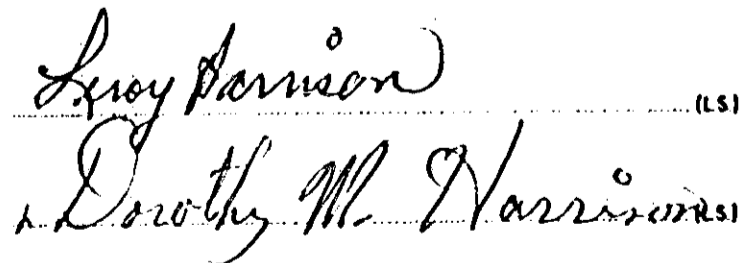 Leroy Harrison (LS)
Dorothy M. Harrison (LS)